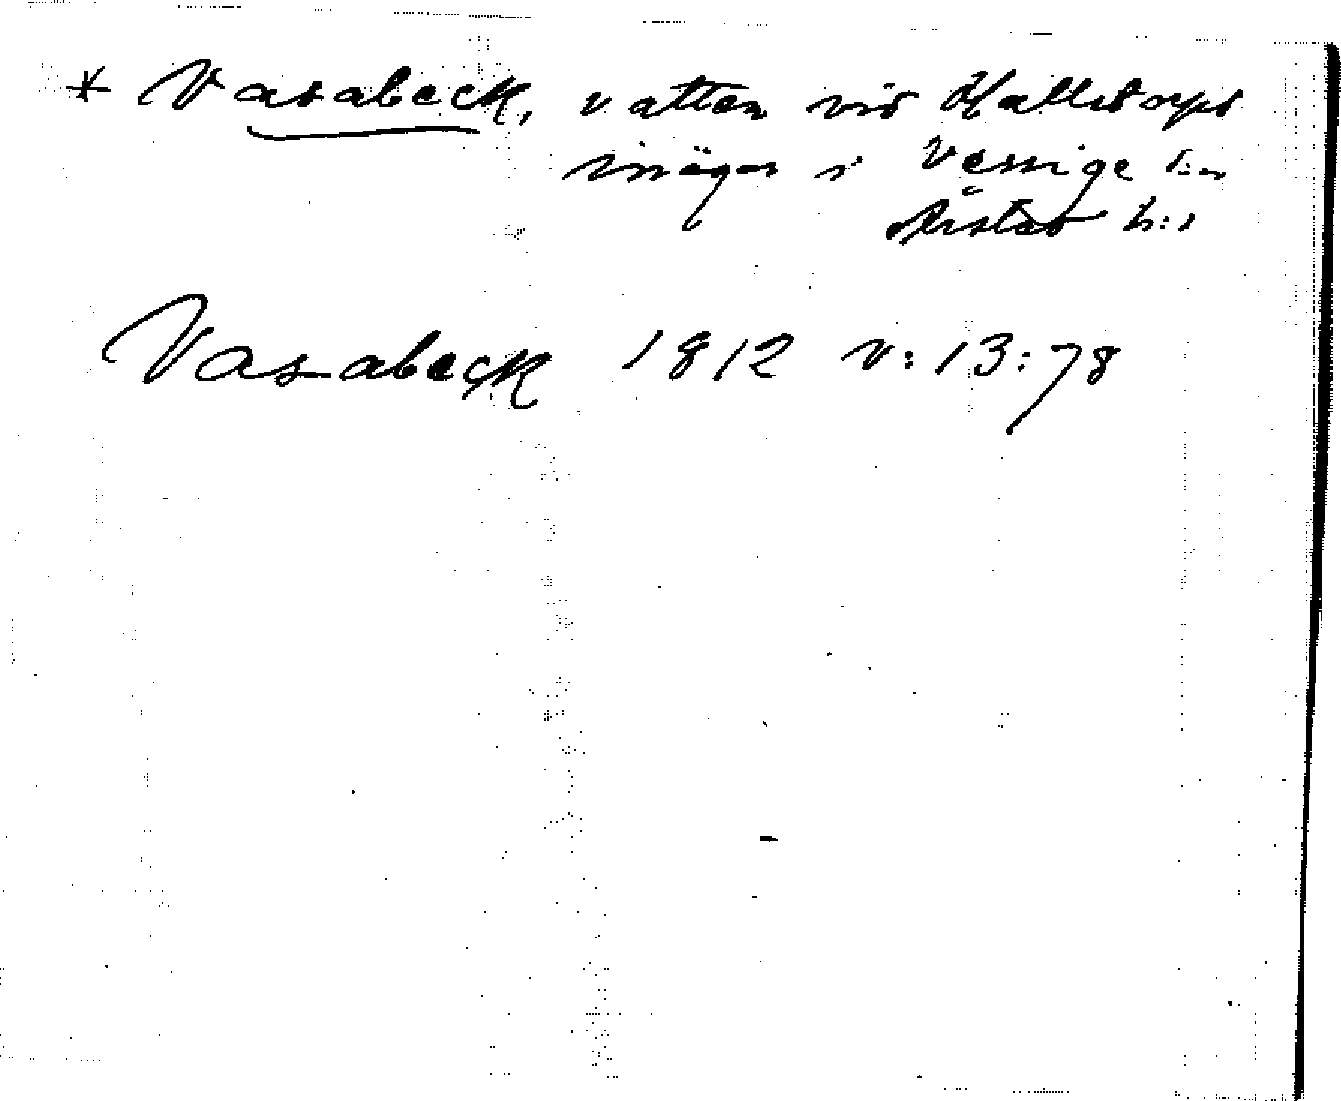 * Vasabeck, vatten vid Hallstorps
inägor i Vessige s:n
Årstad h:d
Vasabeck 1812 v:13:78